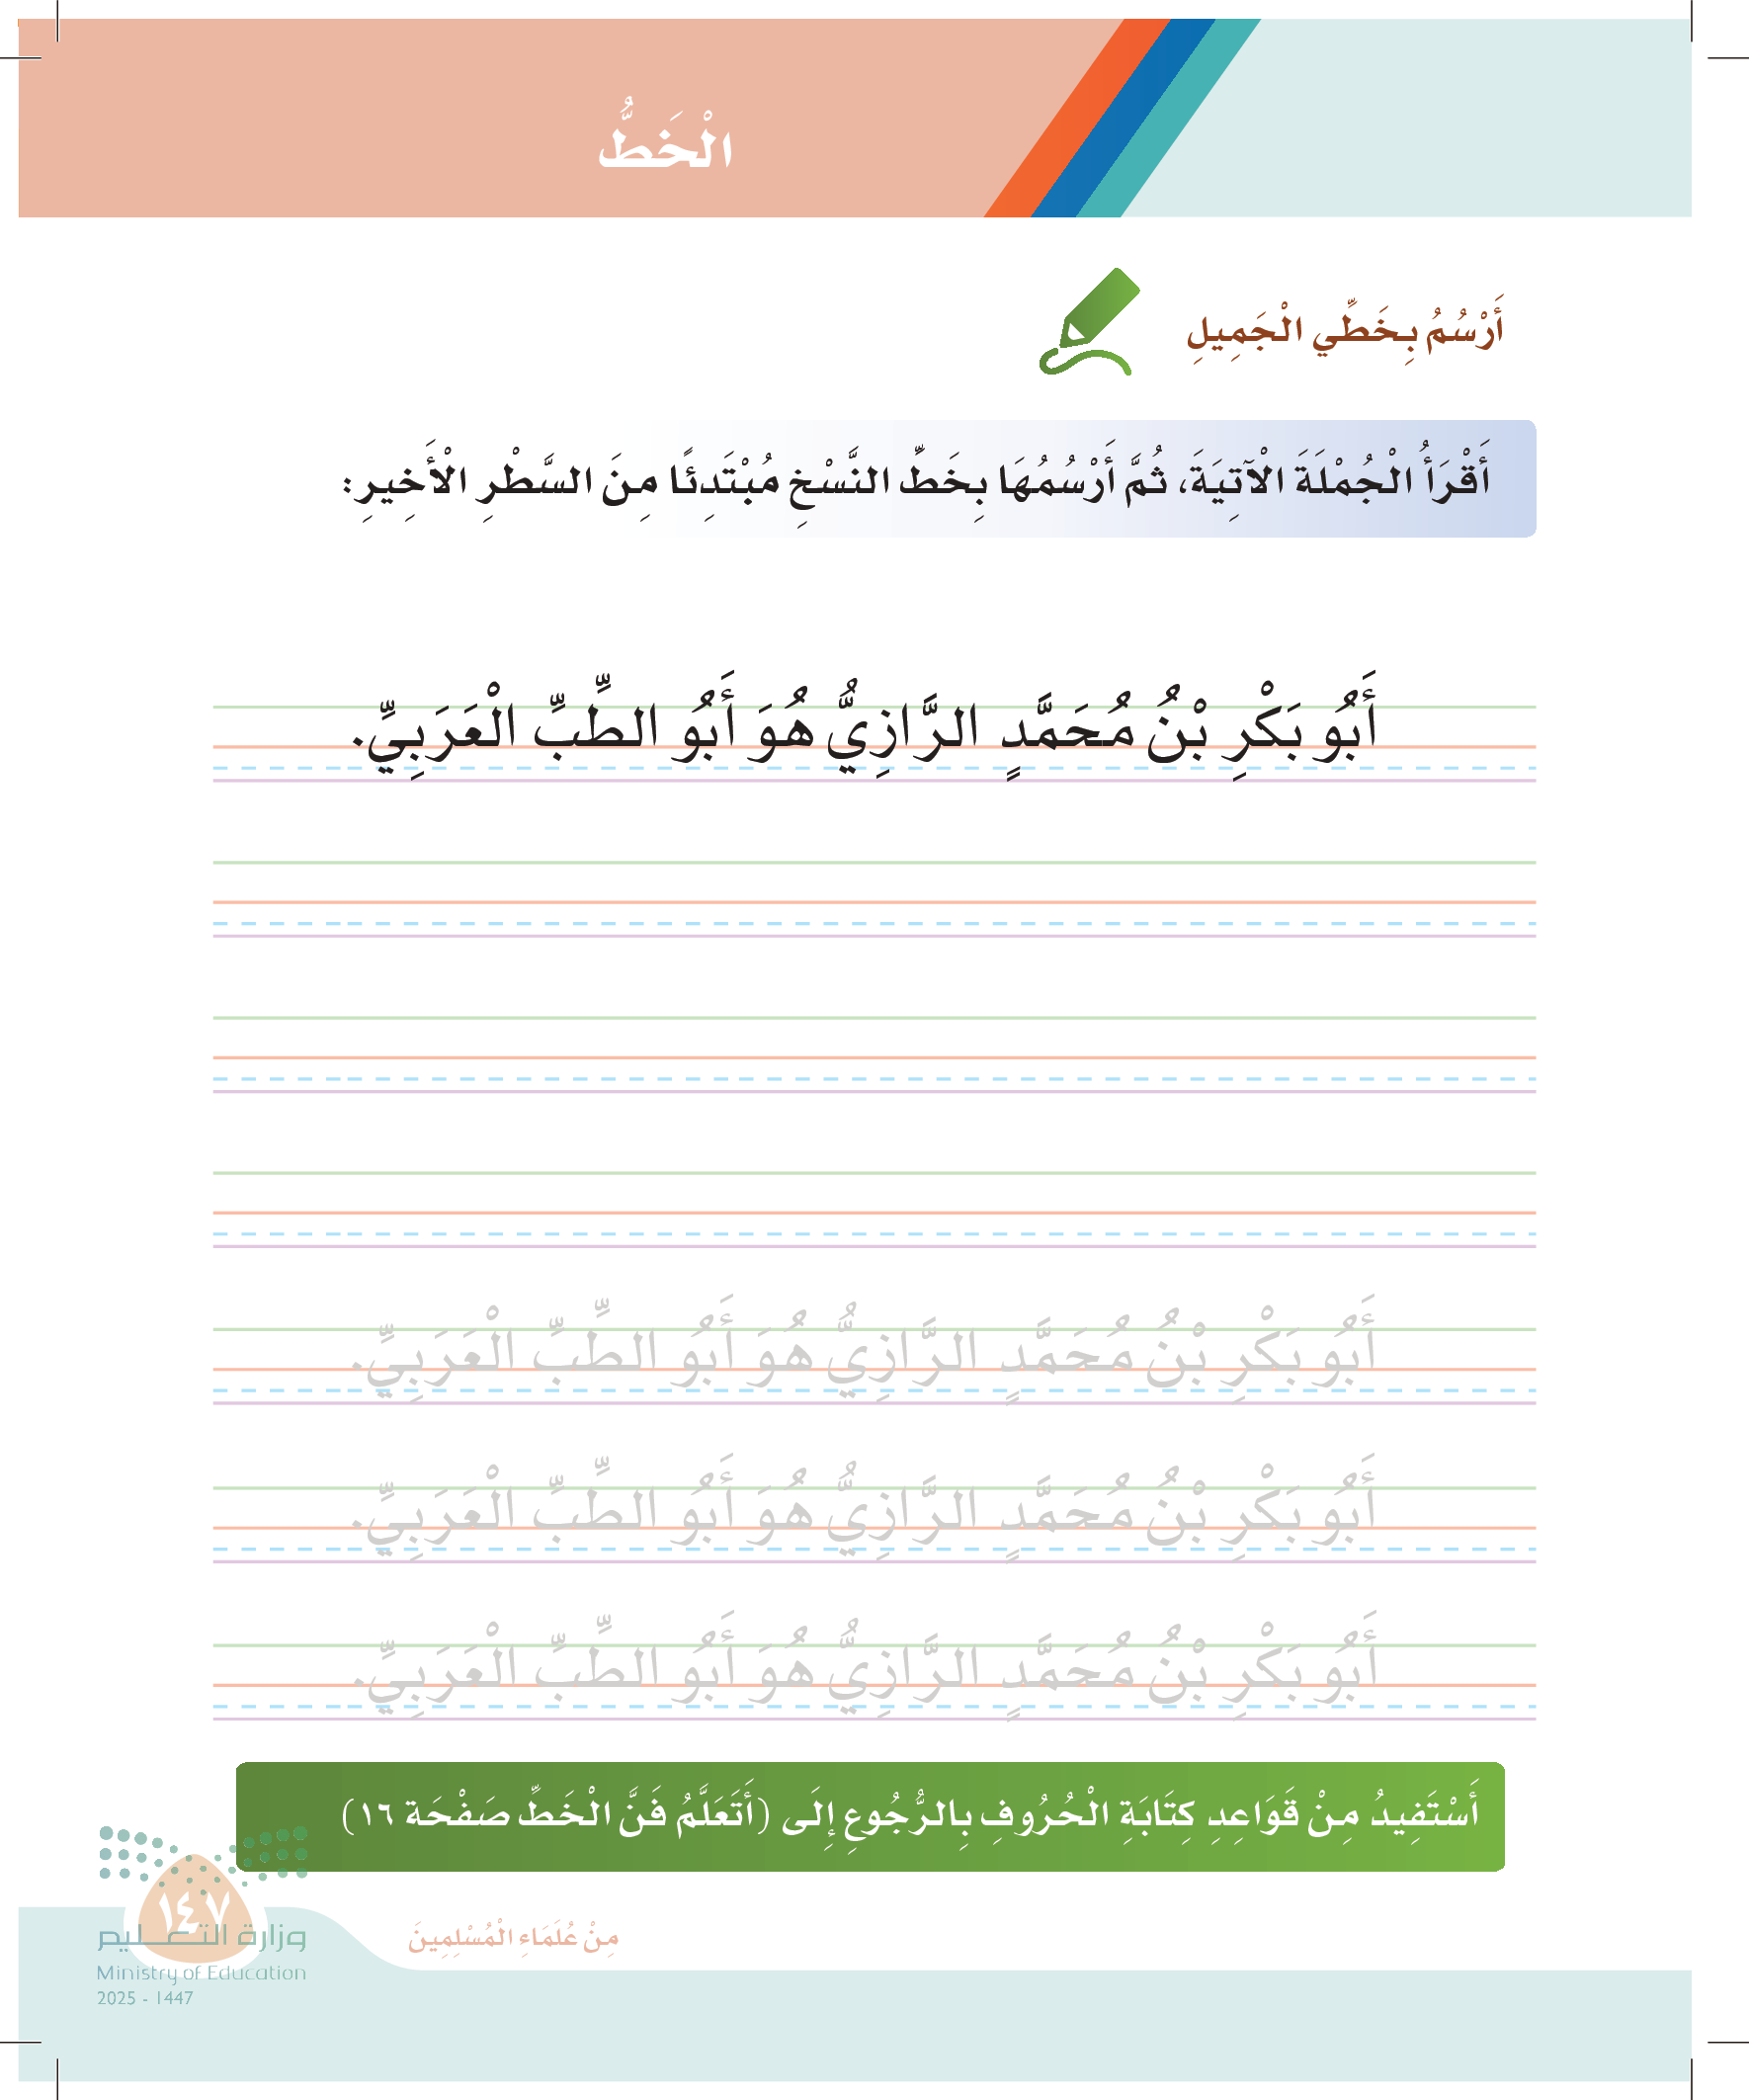 الْخَطُّ
أَرْسُمُ بِخَطِّي الْجَمِيلِ
أَقْرَأُ الْجُمْلَةَ الْآتِيَةَ، ثُمَّ أَرْسُمُهَا بِخَطِّ النَّسْخِ مُبْتَدِئًا مِنَ السَّطْرِ الْأَخِيرِ:
أَبُو بَكْرِ بْنُ مُحَمَّدٍ الرَّازِيُّ هُوَ أَبُو الطِّبِّ الْعَرَبِيِّ.
أَبُو بَكْرِ بْنُ مُحَمَّدٍ الرَّازِيُّ هُوَ أَبُو الطِّبِّ الْعَرَبِيِّ.
أَبُو بَكْرِ بْنُ مُحَمَّدٍ الرَّازِيُّ هُوَ أَبُو الطِّبِّ الْعَرَبِيِّ.
أَبُو بَكْرِ بْنُ مُحَمَّدٍ الرَّازِيُّ هُوَ أَبُو الطِّبِّ الْعَرَبِيِّ.
أَسْتَفِيدُ مِنْ قَوَاعِدِ كِتَابَةِ الْحُرُوفِ بِالرُّجُوعِ إِلَى (أَتَعَلَّمُ فَنَّ الْخَطِّ صَفْحَة ١٦)
مِنْ عُلَمَاءِ الْمُسْلِمِينَ
١٤٧
وزارة التعـــليم
Ministry of Education
2025 - 1447